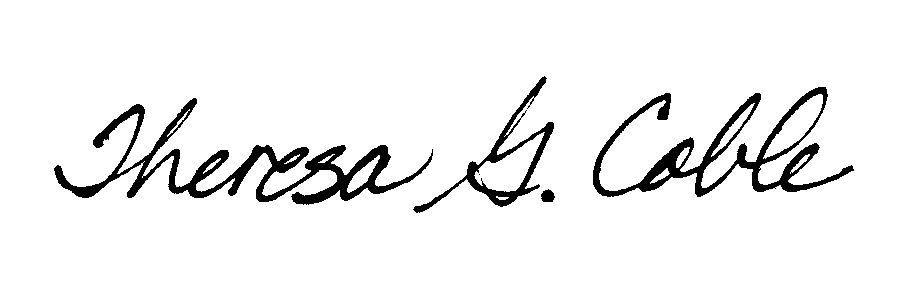 Theresa G. Coble